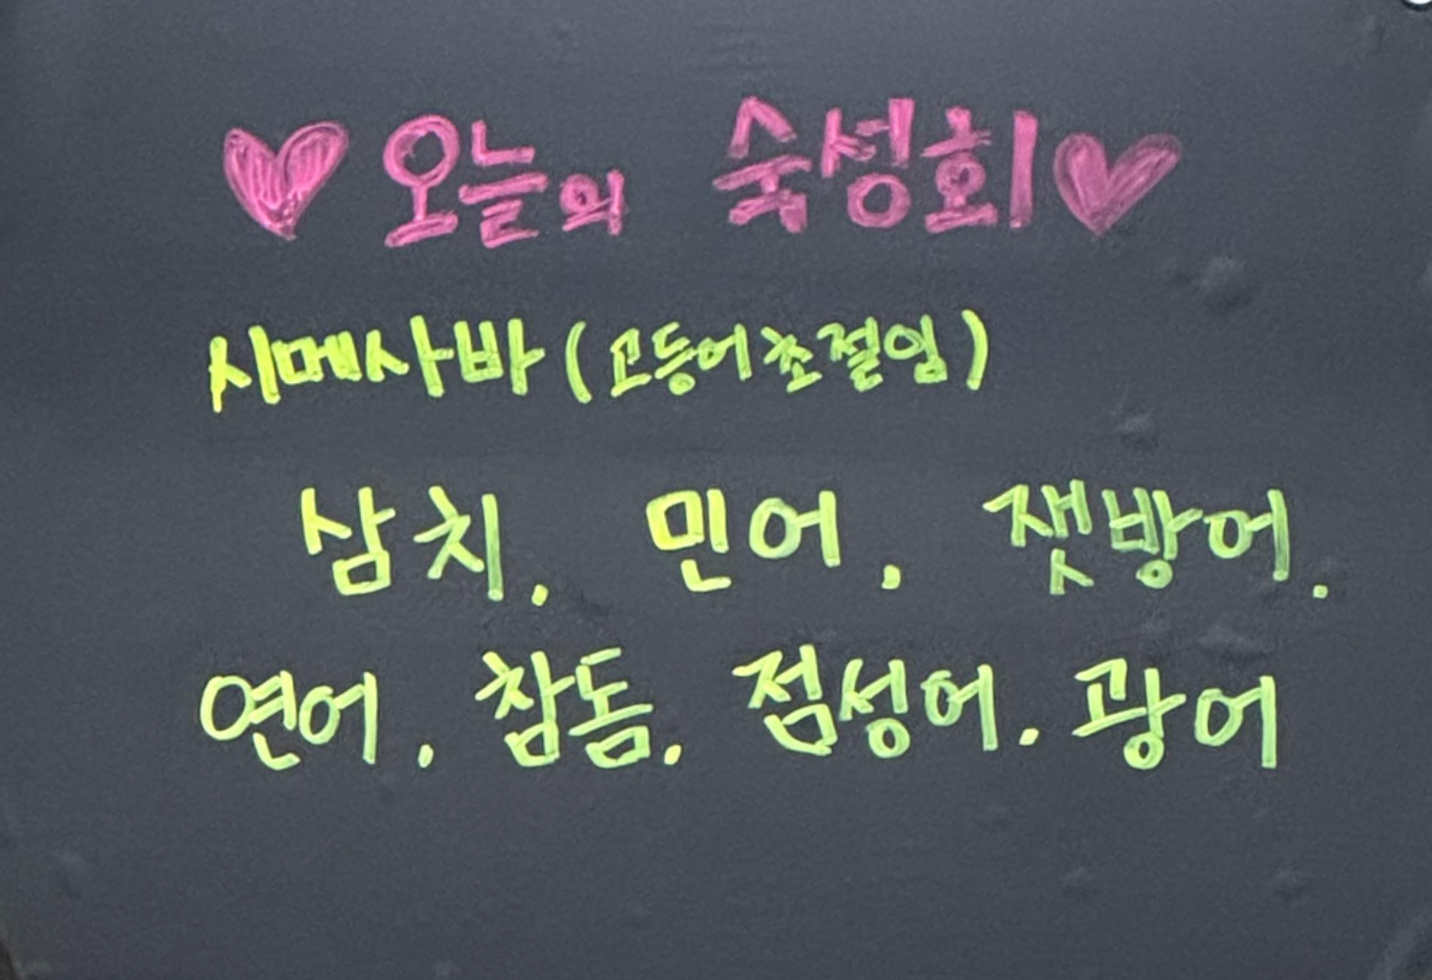 ♥ 오늘의 숙성회 ♥
시메사바 (고등어초절임)
삼치. 민어. 잿방어.
연어. 참돔. 점성어. 광어